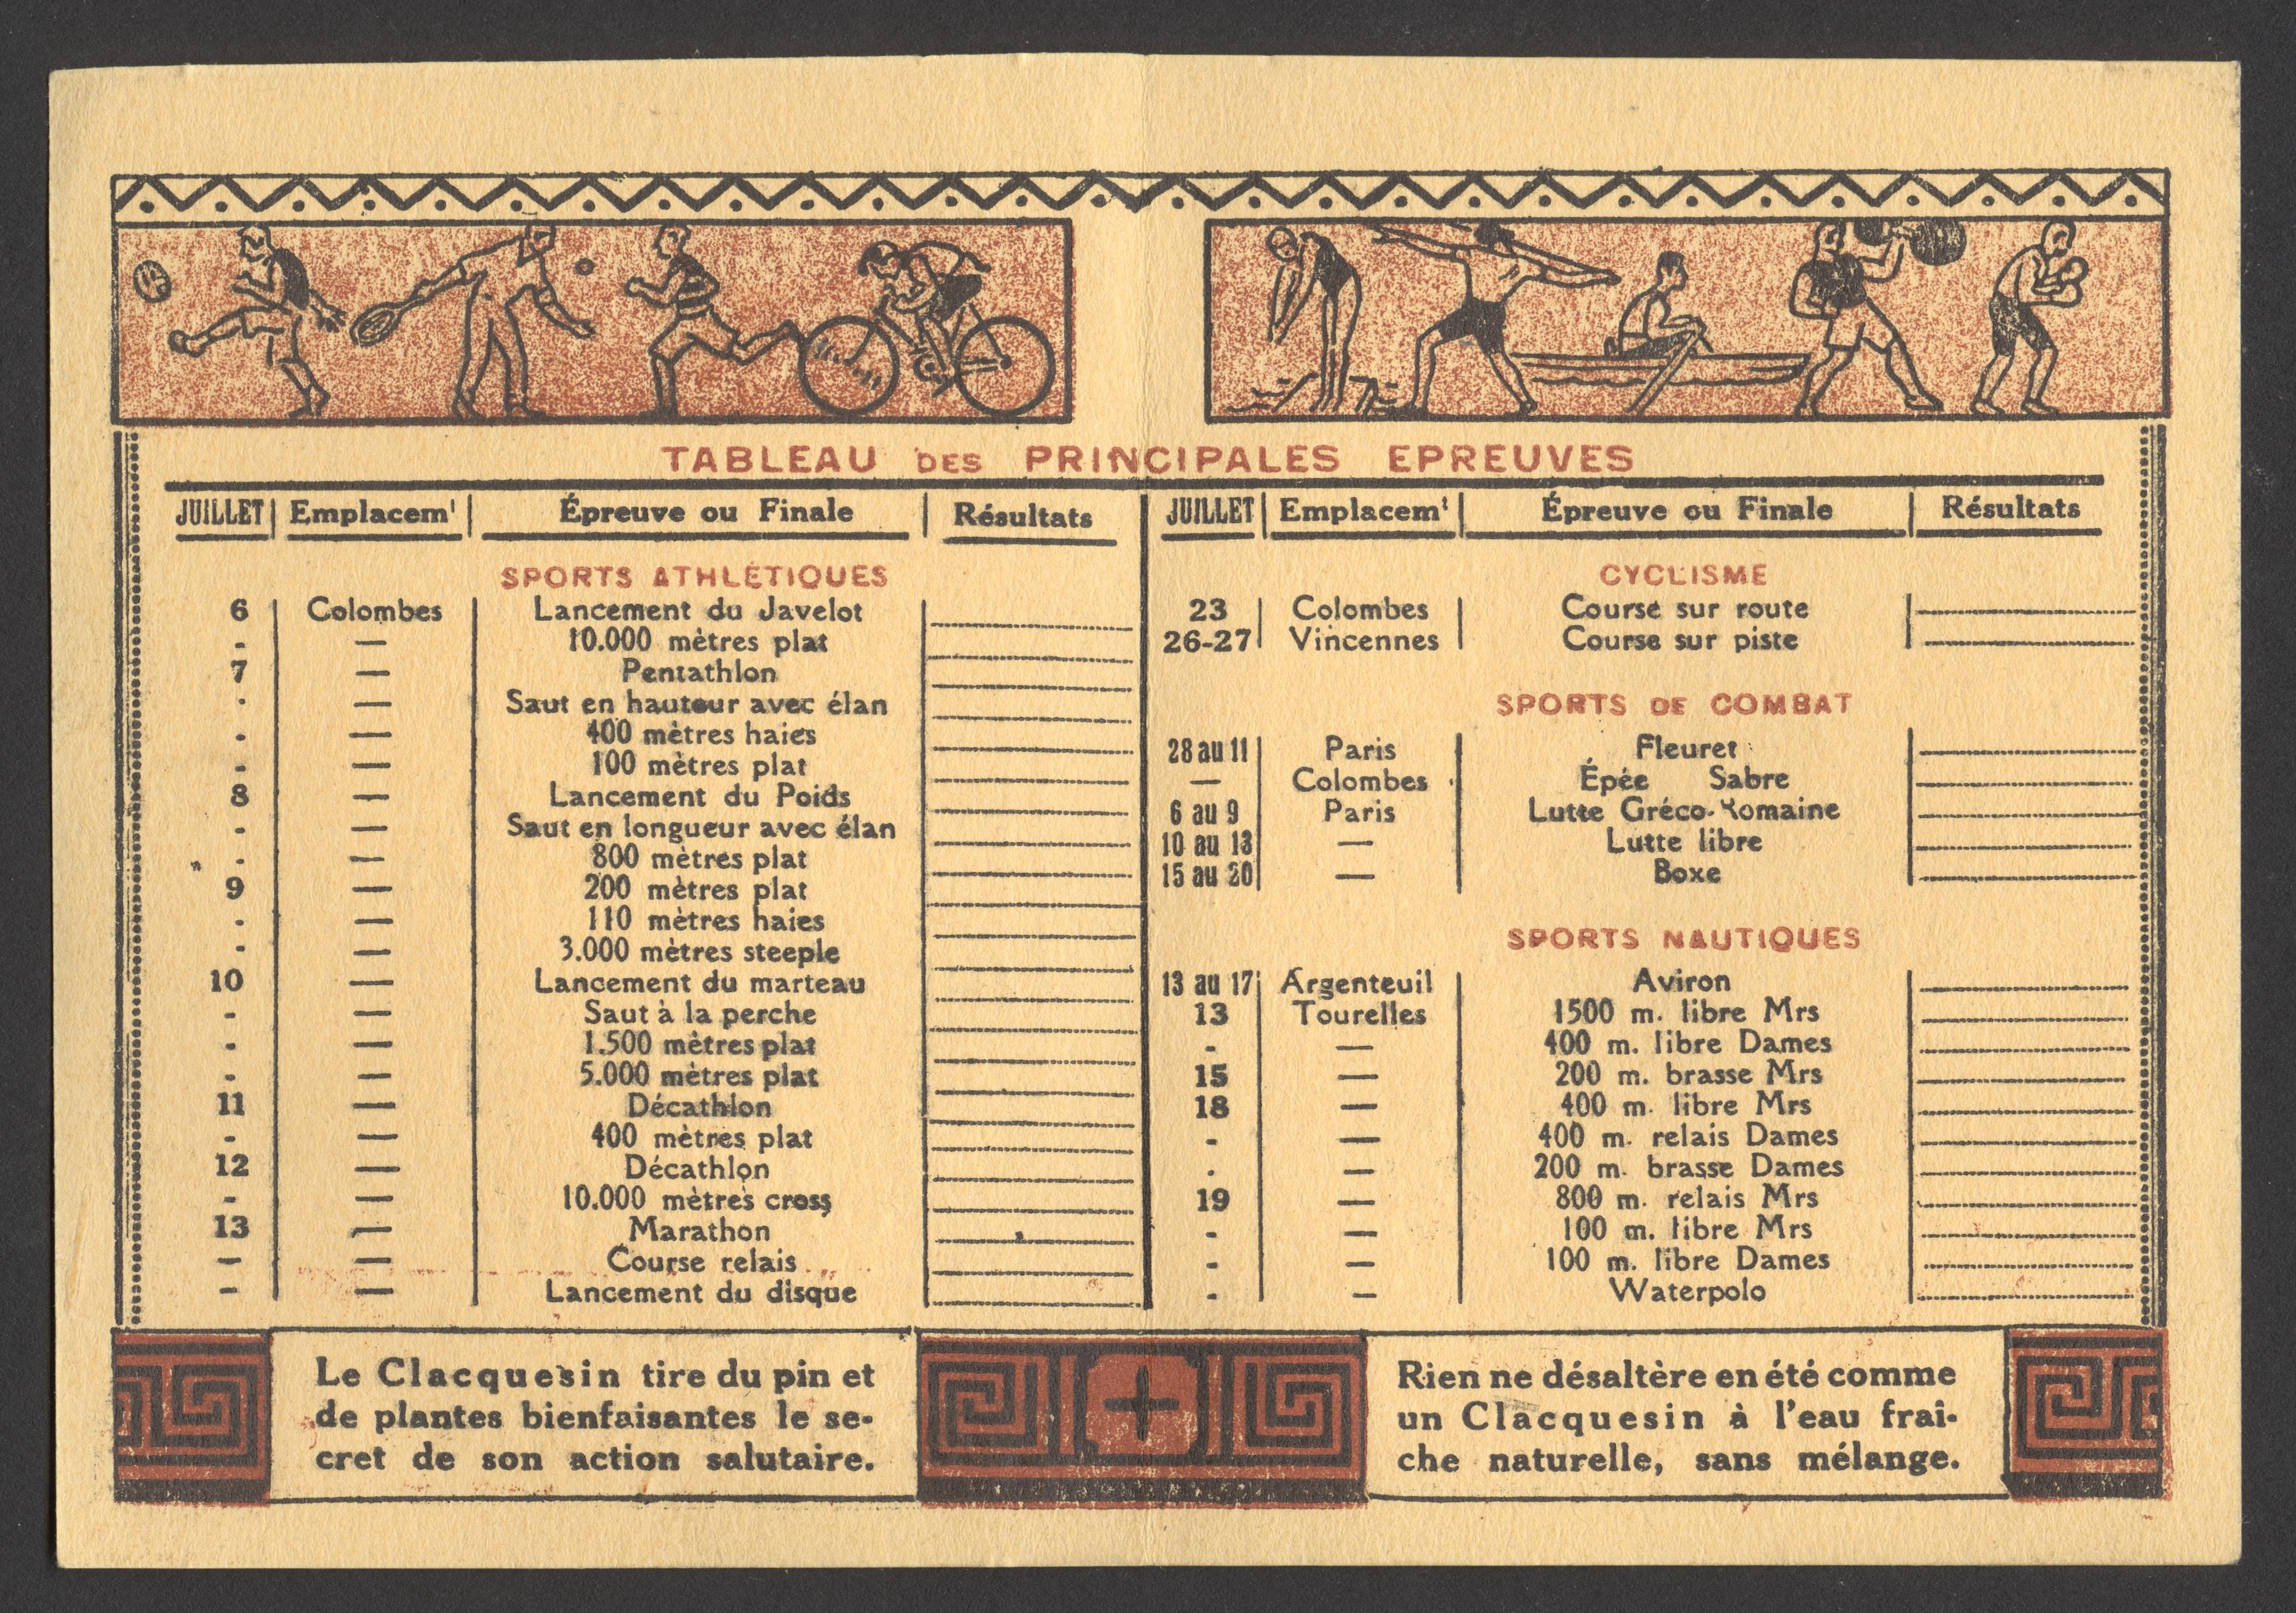 TABLEAU DES PRINCIPALES EPREUVES
JUILLET Emplacemt Épreuve ou Finale Résultats
SPORTS ATHLÉTIQUES
6 Colombes Lancement du Javelot
- — 10.000 mètres plat
7 — Pentathlon
- — Saut en hauteur avec élan
- — 400 mètres haies
- — 100 mètres plat
8 — Lancement du Poids
- — Saut en longueur avec élan
- — 800 mètres plat
9 — 200 mètres plat
- — 110 mètres haies
- — 3.000 mètres steeple
10 — Lancement du marteau
- — Saut à la perche
- — 1.500 mètres plat
- — 5.000 mètres plat
11 — Décathlon
- — 400 mètres plat
12 — Décathlon
- — 10.000 mètres cross
13 — Marathon
— — Course relais
— — Lancement du disque
JUILLET Emplacemt Épreuve ou Finale Résultats
CYCLISME
23 Colombes Course sur route
26-27 Vincennes Course sur piste
SPORTS DE COMBAT
28 au 11 Paris Fleuret
— Colombes Épée Sabre
6 au 9 Paris Lutte Gréco-Romaine
10 au 13 — Lutte libre
15 au 20 — Boxe
SPORTS NAUTIQUES
13 au 17 Argenteuil Aviron
13 Tourelles 1500 m. libre Mrs
- — 400 m. libre Dames
15 — 200 m. brasse Mrs
18 — 400 m. libre Mrs
- — 400 m. relais Dames
- — 200 m. brasse Dames
19 — 800 m. relais Mrs
- — 100 m. libre Mrs
- — 100 m. libre Dames
- — Waterpolo
Le Clacquesin tire du pin et
de plantes bienfaisantes le se-
cret de son action salutaire.
Rien ne désaltère en été comme
un Clacquesin à l'eau fraî-
che naturelle, sans mélange.